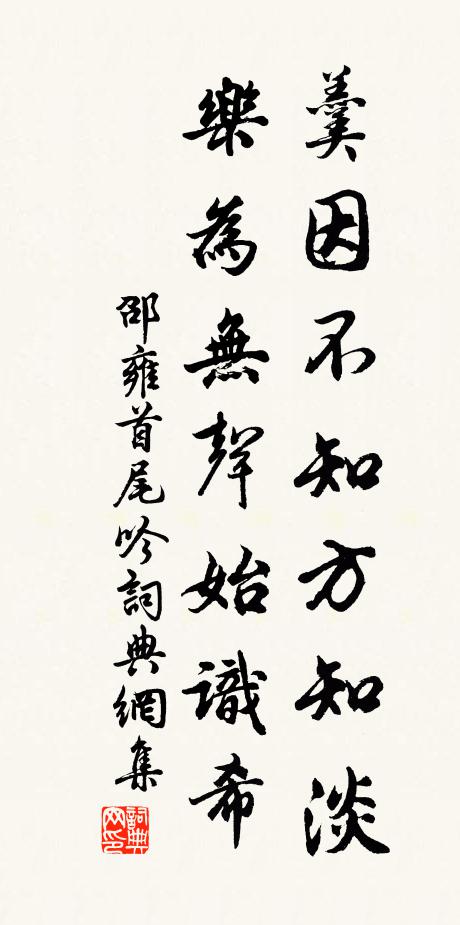 羹因不知方知淡
樂為無聲始識希
邵雍首尾吟詞典網集
詞典
网印